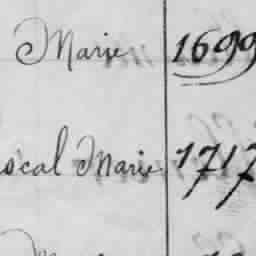 Marie 1699
ocal Marie 1717